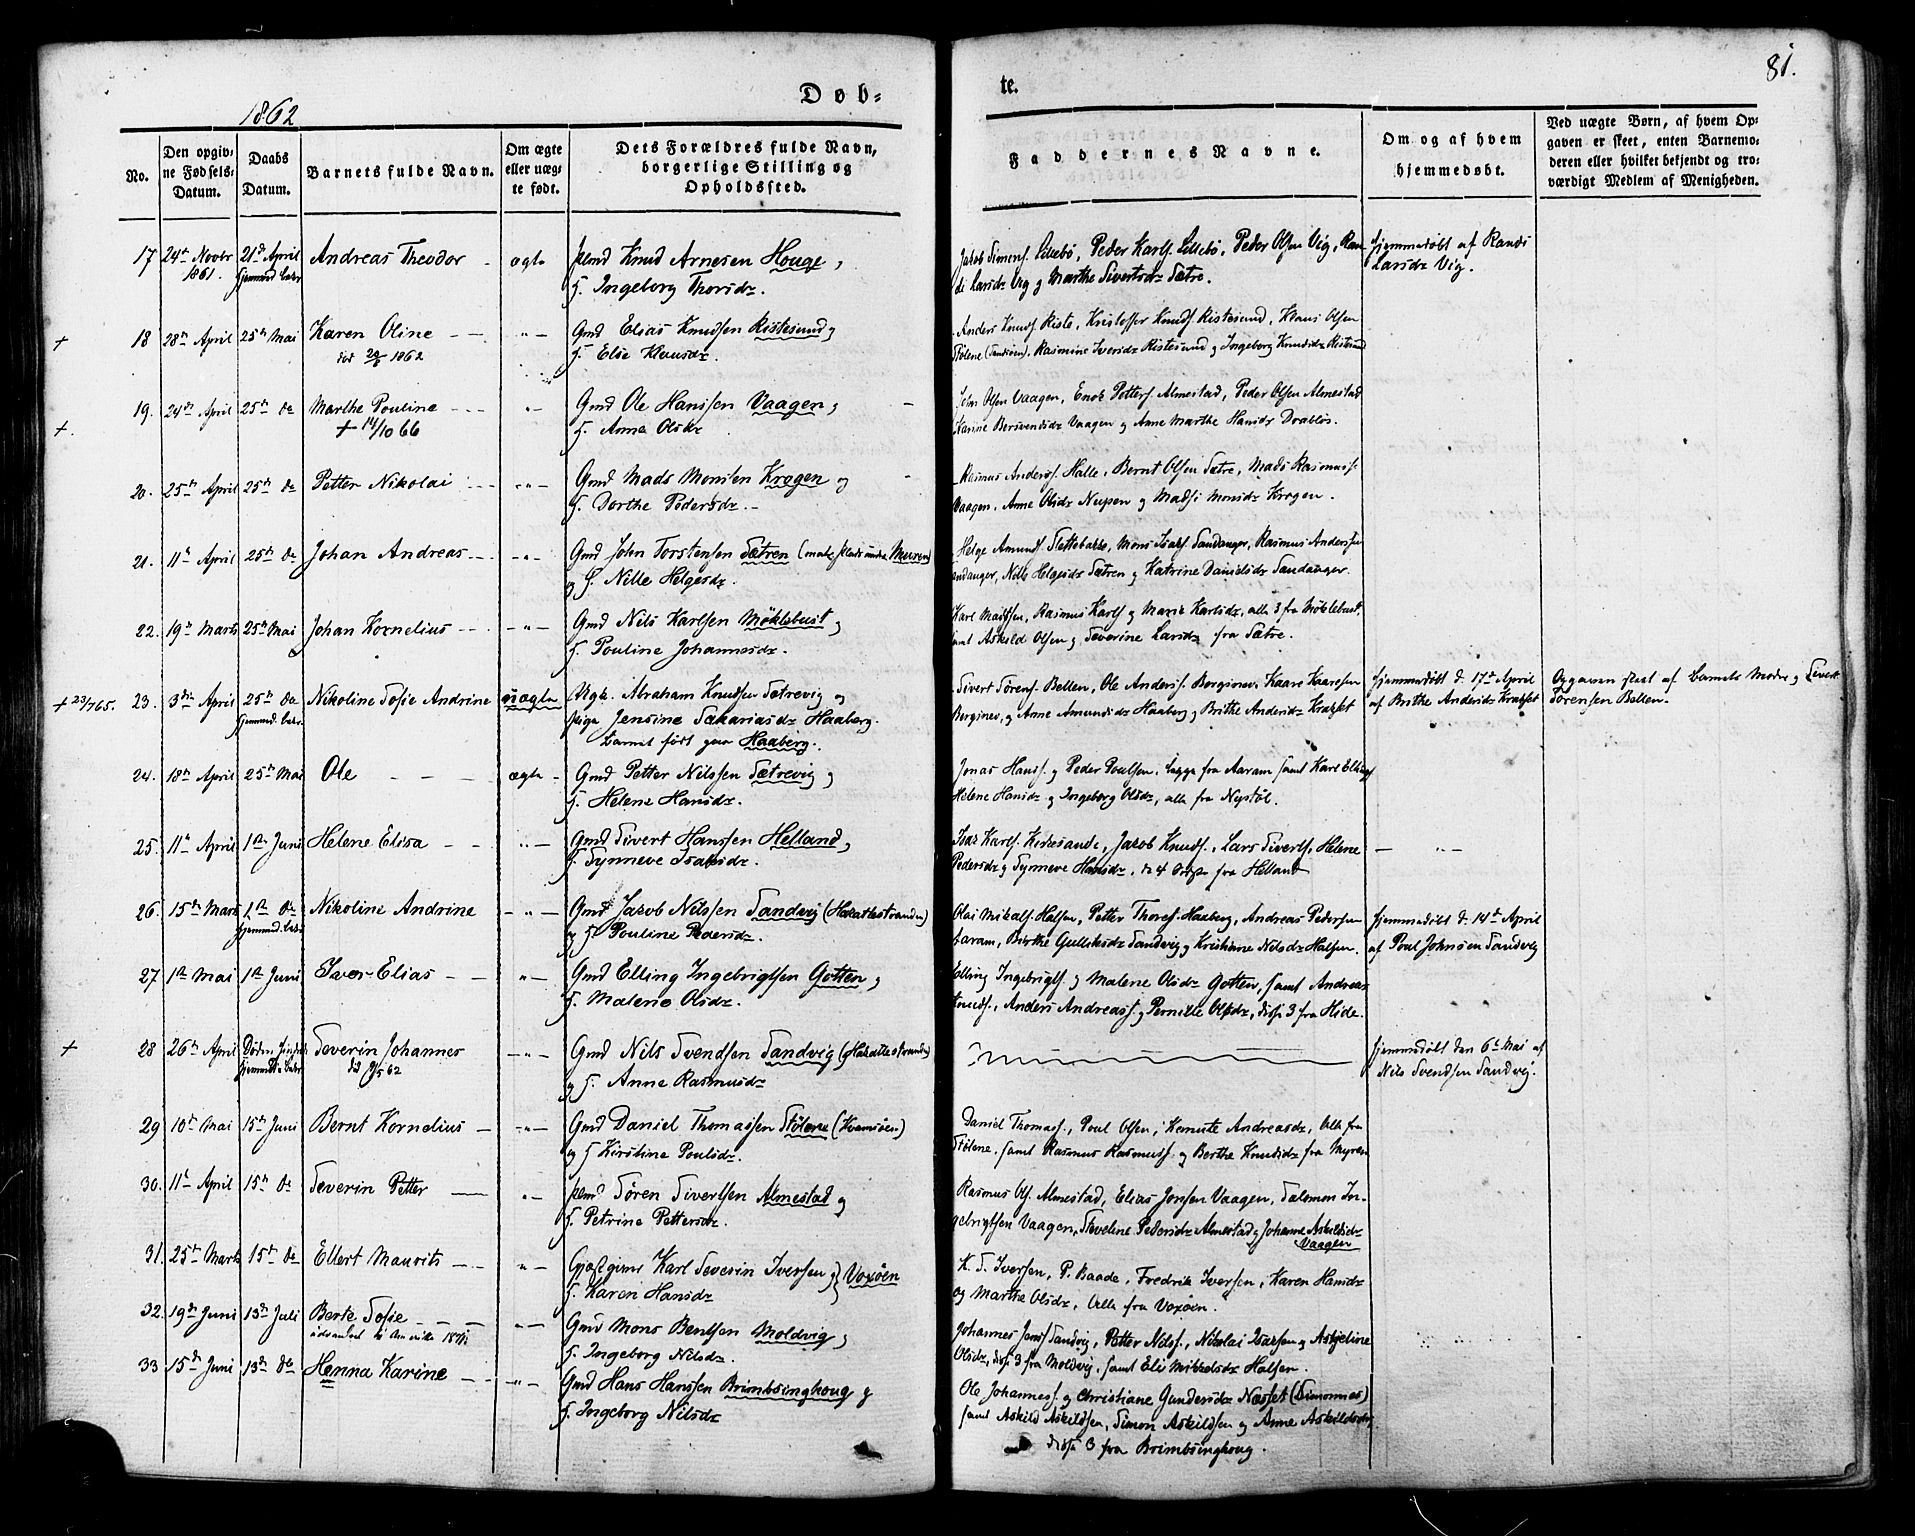 81.
1862
Døb-
te.
No.
Den opgiv-
ne Fødsels-
Datum.
Daabs
Datum.
Barnets fulde Navn.
Om ægte
eller uæg-
te født.
Dets Forældres fulde Navn,
borgerlige Stilling og
Opholdssted.
Faddernes Navne.
Om og af hvem
hjemmedøbt.
Ved uægte Børn, af hvem Op-
gaven er skeet, enten Barnemo-
deren eller hvilket bekjendt og tro-
værdigt Medlem af Menigheden.
17 24de Novbr 21de April Andreas Theodor - ægte Knud Arnesen Houge,
1861.
F. Ingeborg Thorsdr.
Jakob Simons. Lillebø, Peder Karls. Lillebø, Peder Olsen Vig, Ran-
di Larsdr Vig og Marthe Sivertsdr Sætre.
Hjemmedøbt af Randi
Larsdr Vig.
+ 18 28de April 25de Mai Karen Oline - - " - Gmd Elias Knudsen Ristesund og
død 1862
F. Elie Klausdr.
Anders Knuds. Riste, Kristoffer Knuds. Ristesund, Klaus Olsen
Stølene (Sandsøen), Rasmine Iversdr Ristesund og Ingeborg Knudsdr Ristesund
+. 19. 24de April 25de do Marthe Pouline - - " - Gmd Ole Hanssen Vaagen og
+ 14/10 66
F. Anne Olsdr
John Olsen Vaagen, Enok Petters. Almestad, Peder Olsen Almestad
Karine Bersvendsdr Vaagen og Anne Marthe Hansdr Drabløs.
20. 25de April 25de do Petter Nikolai - - " - Gmd Mads Monsen Kragen og
F. Dorthe Pedersdr. -
Rasmus Anderss. Halle, Bernt Olsen Sætre, Mads Rasmuss.
Vaagen. Anne Olsdr Nupen og Madsi Monsdr Kragen.
21. 11te April 25de do Johan Andreas - - " - Gmd John Torstensen Sætren
og F. Nille Helgesdr.
Helge Amunds. Slettebakke, Mons Isaks. Sandanger, Rasmus Andersen
Sandanger, Nille Helgesdr Sætren og Katrine Danielsdr Sandanger.
22. 19de Marts 25de Mai Johan Kornelius - - " - Gmd Nils Karlsen Möklebust og
F. Pouline Johannesdr.
Karl Madsen, Rasmus Karls. og Marie Karlsdr, alle 3 fra Möklebust,
samt Askild Olsen og Severine Larsdr fra Sætre.
+ 23/7 65. 23. 3die April 25de do Nikoline Sofie Andrine uægte Ungk. Abraham Knudsen Sætrevig og
Pige Jensine Sakariasdr Haaberg.
Barnet født paa Haaberg.
Sivert Sørens. Bellen, Ole Anders. Berginev, Kaare Kaaresen
Berginev, og Anne Amundsdr Haaberg og Brithe Andersdr Kragset
Hjemmedøbt d. 17de April
af Brithe Andersdr Kragset
Opgaven skeet af Barnets Moder og Sivert
Sørensen Bellen.
24. 18de April 25de Mai Ole - - - ægte - Gmd Petter Nilssen Sætrevig og
F. Helene Hansdr.
Jonas Hans. og Peder Poulsen, begge fra Aaram samt Karl Ellings.
Helene Hansdr og Ingeborg Olsdr, alle fra Nystöl.
25. 11te April 1ste Juni Helene Elisa - - " - Gmd Sivert Hanssen Helland og
F. Synneve Isaksdr.
Isak Karls. Kidesande, Jacob Knuds., Lars Siverts., Helene
Pedersdr og Synneve Hansdr, de 4 fra Helland
- " -
26. 15de Marts 1ste do Nikoline Andrine - " - Gmd Jacob Nilssen Sandvig (Hakallestranden)
og F. Pouline Pedersdr.
Olai Mikals. Halsen, Petter Thores. Haaberg, Andreas Pedersen
Aaram, Birthe Gulleksdr Sandvig og Kristiane Nilsdr Halsen.
Hjemmedøbt d. 14de April
af Poul Johnsen Sandvig
27 1ste Mai 1ste Juni Iver Elias - - " - Gmd Elling Ingebrigtsen Gotten og
F. Malene Olsdr.
Elling Ingebrigts. og Malene Olsdr Gotten, samt Andreas
Knuds., Anders Andreass. og Pernille Olsdr, disse 3 fra Hide.
+ 28 26de April Severin Johannes - " - Gmd Nils Svendsen Sandvig (Hakallestranden)
og F. Anne Rasmusdr
Hjemmedøbt den 6te Mai af
Nils Svendsen Sandvig.
29 10de Mai 15de Juni Bernt Kornelius - - " - Gmd Daniel Thomassen Stölene (Kvamsöen)
og F Kirstine Poulsdr.
Daniel Thomass., Poul Olsen, Andreasdr, Alle fra
Stölene, samt Rasmus Rasmuss. og Berthe Knudsdr fra Myren
30. 11te April 15de do Severin Petter - " - Sören Sivertsen Almestad og
F. Petrine Pettersdr.
Rasmus Ols. Almestad, Elias Jonsen Vaagen, Salomon In-
gebrigtsen Vaagen, Pedersdr Almestad og Johanne Askildsdr
Vaagen
31. 25de Marts 15de do Ellert Mauritz - - " - Karl Severin Iversen og } Voxöen
F. Karen Hansdr
K. S. Iversen, P. Baade, Fredrik Iversen, Karen Hansdr
og Marthe Olsdr, Alle fra Voxöen.
32. 19de Juni 13de Juli Berte Sofie - - - " - Gmd Mons Bentsen Moldvig og
udvandret til Amerika
F. Ingeborg Nilsdr.
Johannes Jens. Sandvig, Petter Nils., Nikolai Isaksen og Askjeline
Olsdr, disse 3 fra Moldvig, samt Eli Mikkelsdr Halsen.
33 15de Juni 13de do Henna Karine - - " - Gmd Hans Hanssen Brimbsinghoug og
F. Ingeborg Nilsdr
Ole Johanness. og Christiane Gundersdr Næsset (Simonnes)
samt Askild Askildsen, Simon Askildsen og Anne Askildsdr,
disse 3 fra Brimbsinghoug.